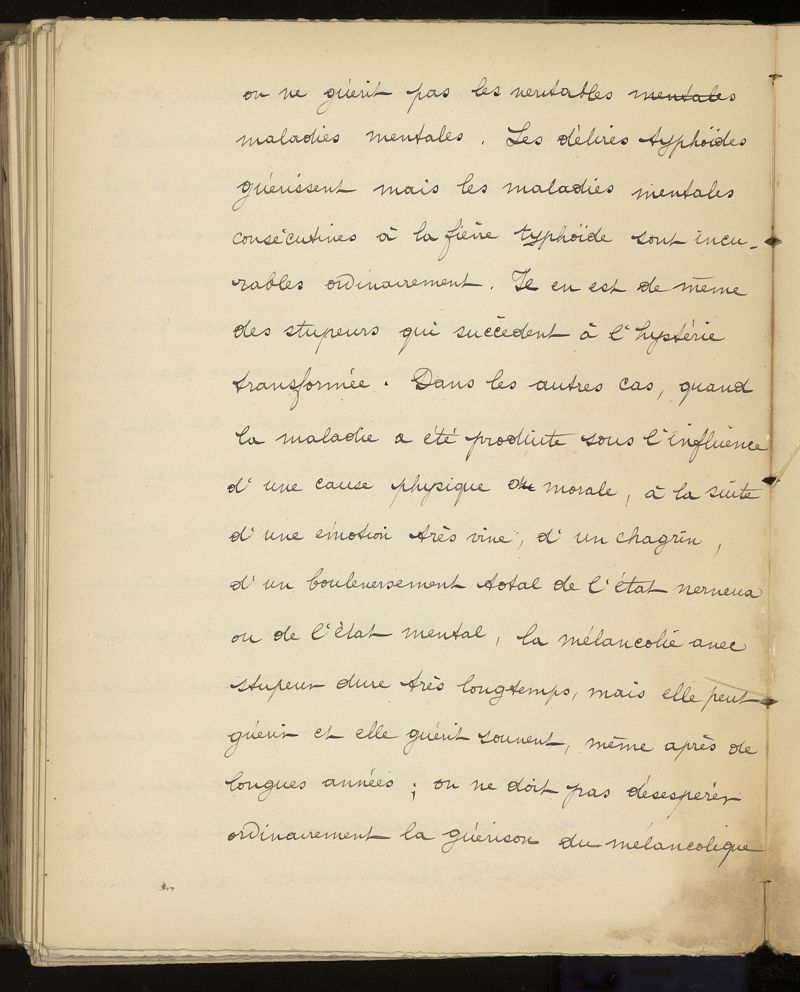 on ne guérit pas les veritables ~~mentales~~
maladies mentales. Les délires typhoïdes
guérissent mais les maladies mentales
consécutives à la fièvre typhoïde sont incu-
rables ordinairement. Il en est de même
des stupeurs qui succèdent à l'hystérie
transformée. Dans les autres cas, quand
la maladie a été produite sous l'influence
d'une cause physique ou morale, à la suite
d'une émotion très vive, d'un chagrin,
d'un bouleversement total de l'état nerveux
ou de l'état mental, la mélancolie avec
stupeur dure très longtemps, mais elle peut
guérir et elle guérit souvent, même après de
longues années ; on ne doit pas désesperér
ordinairement la guérison du mélancolique